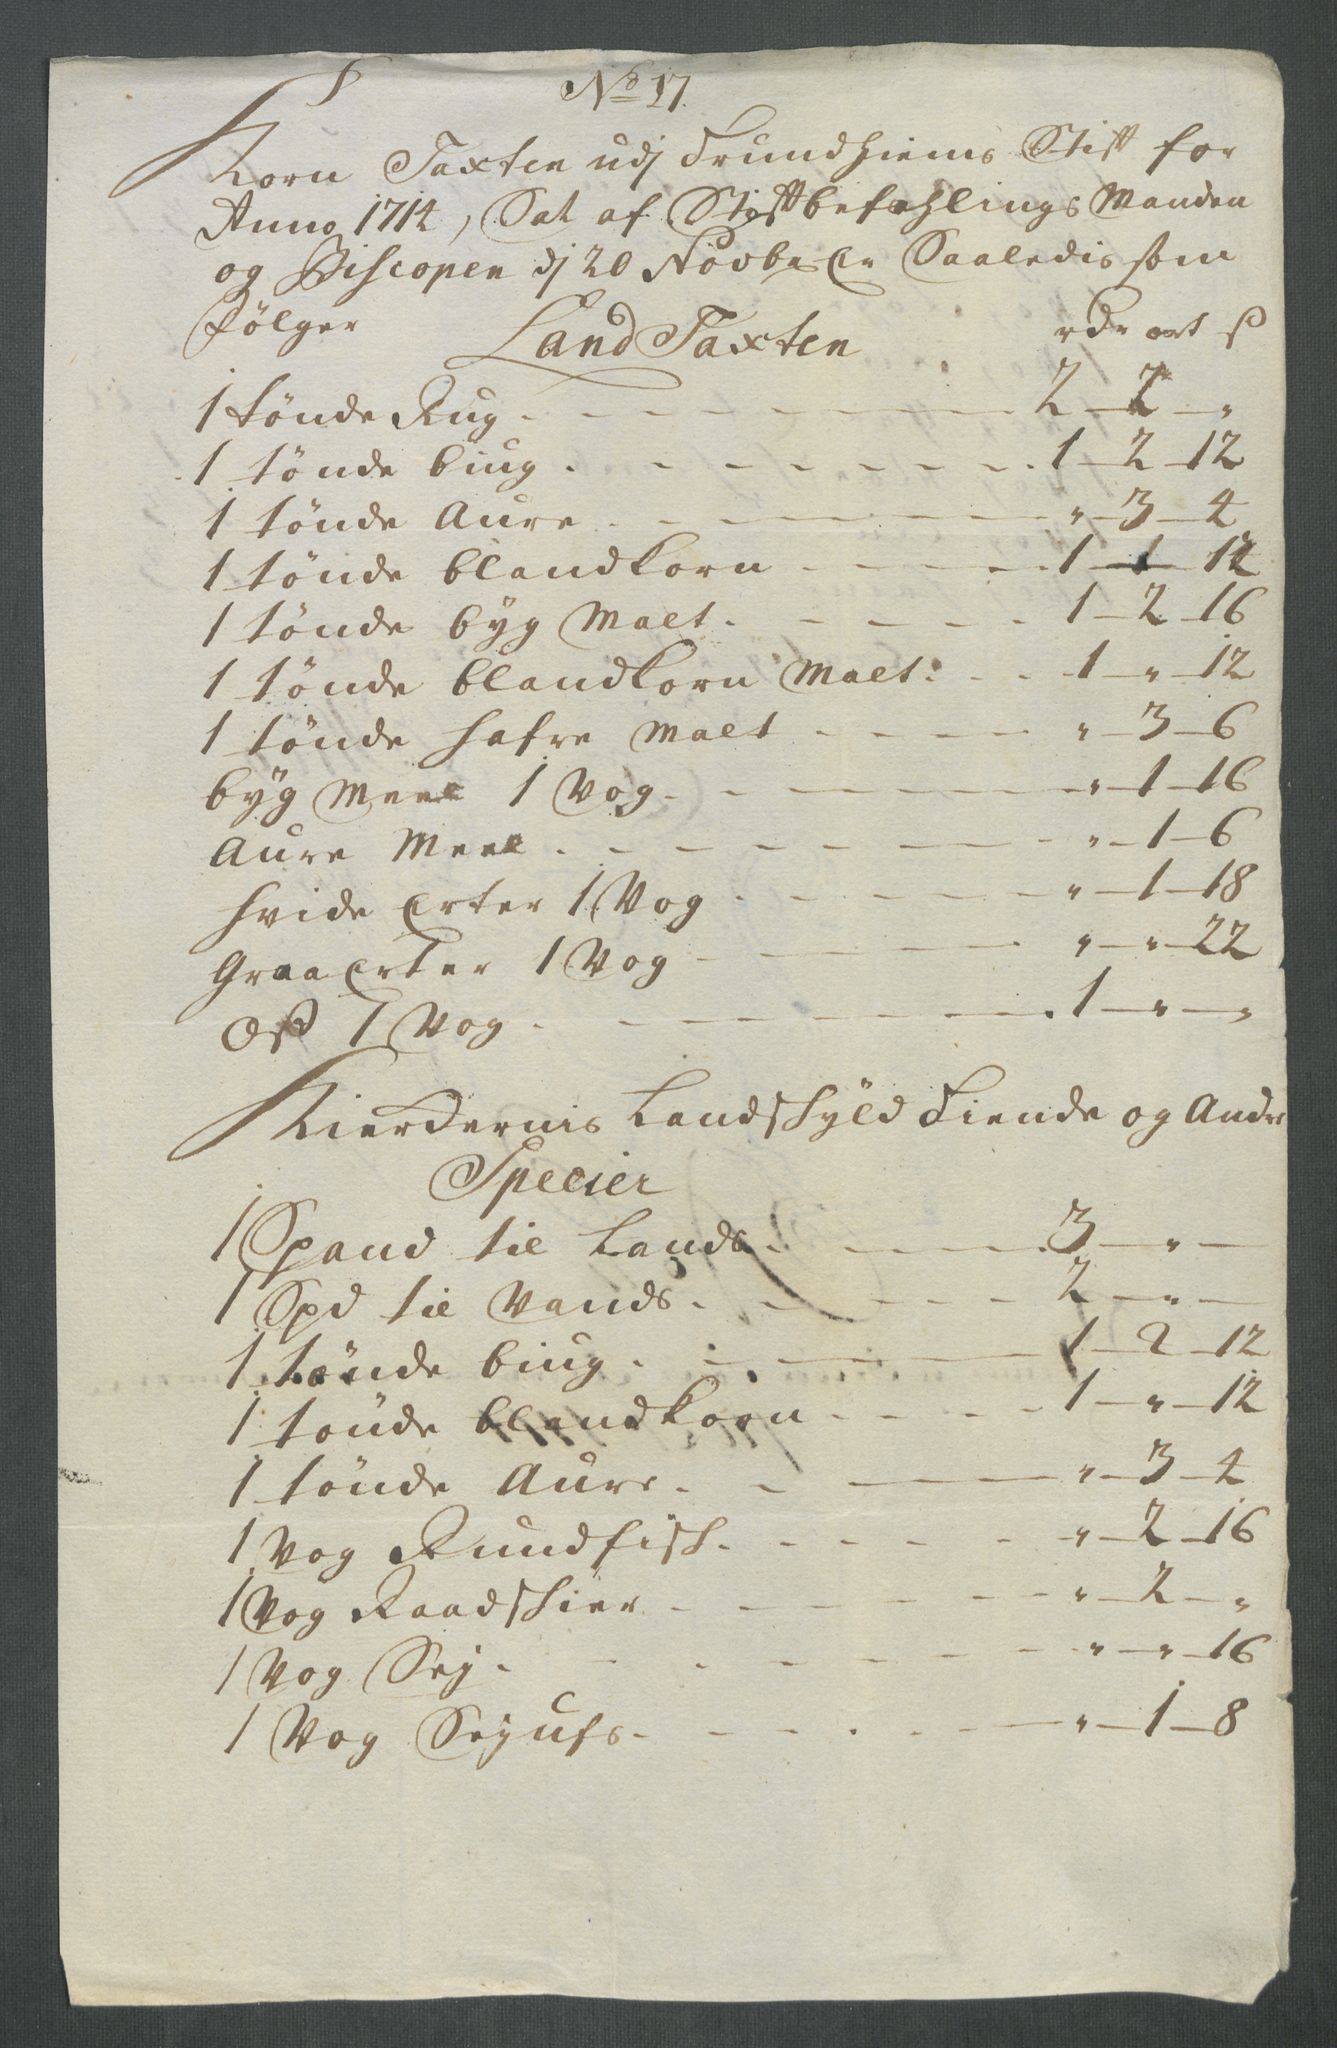 No 17
Korn Taxten udj Trundhiems Stift for
Anno 1714, Sat af Stiftbefahlings Manden
og Biscopen dj 20 Novbr Er Saaledis som
Fölger Land Taxten rdr ort s
1 tönde Rug . - - - - - - 2 - 2 - "
1 tönde biug . - - - - - - 1 - 2 - 12
1 tönde Aure . - - - - - - " - 3 - 4
1 tönde blandkorn . - - - - 1 - 1 - 12
1 tönde byg Malt . - - - - 1 - 2 - 16
1 tönde blandkorn Malt . - - 1 - " - 12
1 tönde hafre Malt - - - - " - 3 - 6
byg Meel 1 Vog . - - - - - " - 1 - 16
Aure Meel . - - - - - - " - 1 - 6
hvide Erter 1 Vog . - - - - " - 1 - 18
Graa Erter 1 Vog - - - - - " - " - 22
Ost 1 Vog . - - - - - - 1 - " - "
Kierdernis Landskyld Tiende og Andre
Specier
1 Spand til Lands . - - - - 3 - " -
1 Spd til Vands . - - - - 2 - " -
1 tönde biug . - - - - - 1 - 2 - 12
1 tönde blandkorn . - - - - 1 - " - 12
1 tönde Aure . - - - - " - 3 - 4
1 Vog Rundfisk . - - - - " - 2 - 16
1 Vog Raadskier - - - - - " - 2 - "
1 Vog Sej . - - - - - - " - " - 16
1 Vog Sejufs . - - - - - " - 1 - 8